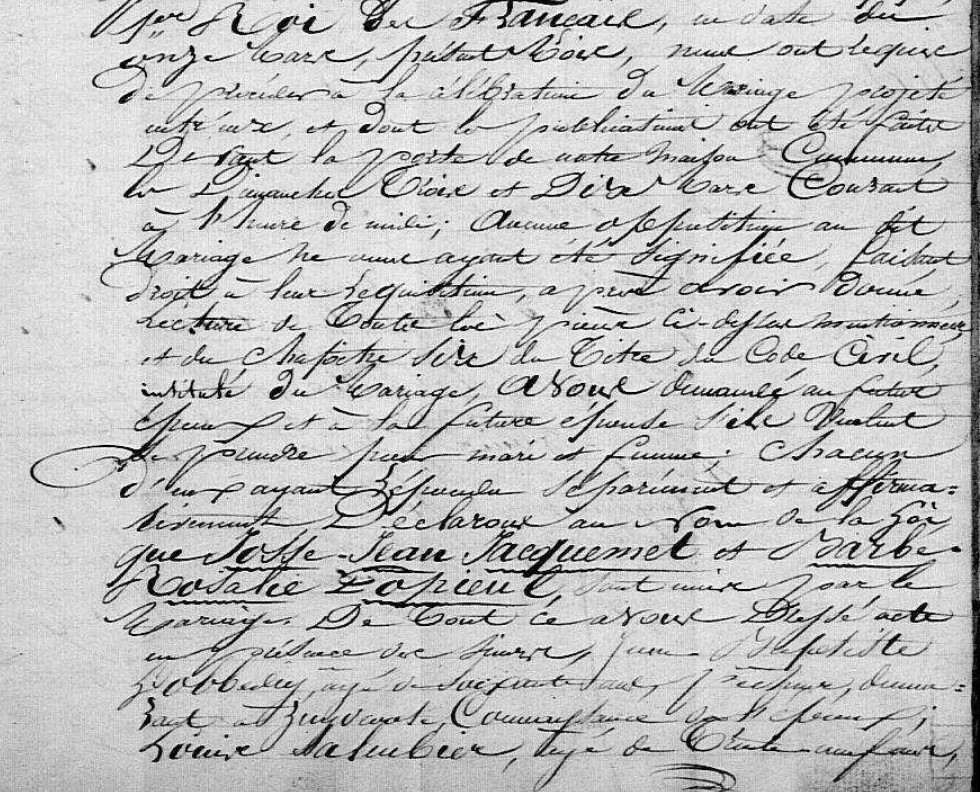 1er Roi des Français, en date du
onze Mars, présent mois, nous ont requis
de procéder à la célébration du Mariage projeté
entr'eux, et dont les publications ont été faites
Devant la porte de notre maison Commune,
les Dimanches Trois et Dix Mars Courant
à l'heure de midi; Aucune opposition au dit
Mariage ne nous ayant été Signifiée, faisant
droit à leur réquisition, après avoir Donné
Lecture de Toutes les pièces Ci-dessus mentionnées
et du Chapitre Six du Titre du Code Civil,
intitulé du Mariage, Avons demandé au futur
époux et à la future épouse S'ils Veulent
se prendre pour mari et femme. Chacun
d'eux ayant Répondu Séparément et affirma=
tivement Déclarons au Nom de la Loi
que Josse Jean Jacquemet et Barbe
Rosalie Popieul, sont unis par le
Mariage. De Tout ce avons Dressé acte
en présence des Sieurs, Jean Baptiste
âgé de Soixante ans, demeu=
rant à Connaissance de l'époux;
Louis âgé de Trente neuf ans,